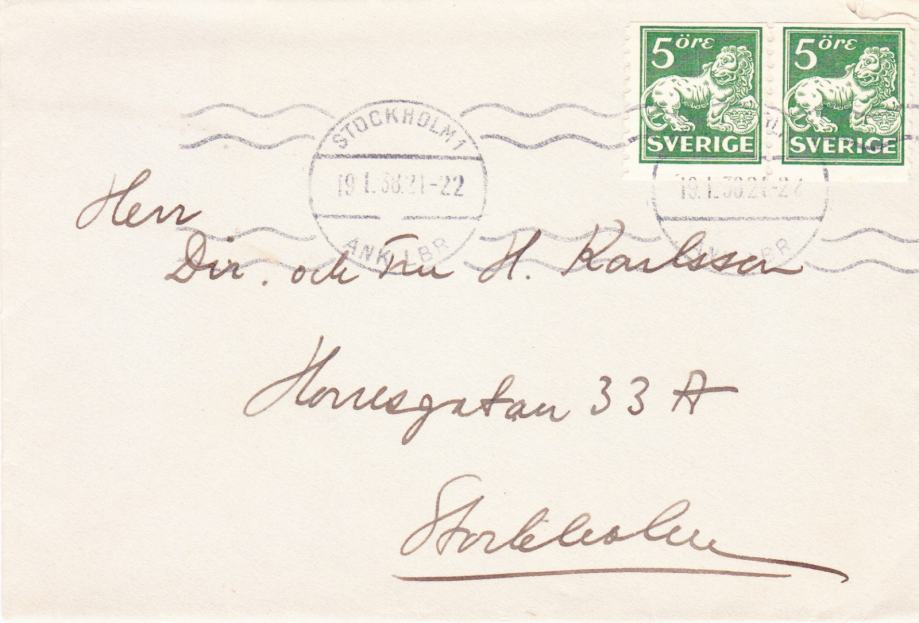 5 öre 5 öre
SVERIGE SVERIGE
STOCKHOLM 1
19.1.38.21-22 19.1.38.21-22
ANK LBR
Herr
Dir. och Fru H. Karlsson
33 A
Stockholm